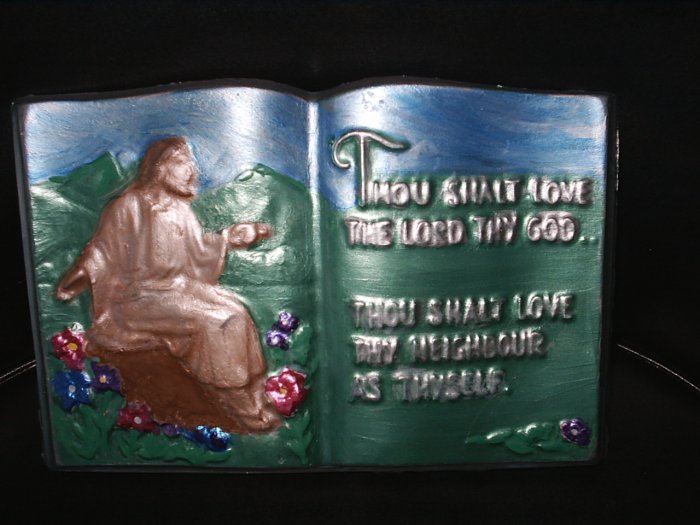 THOU SHALT LOVE
THE LORD THY GOD..
THOU SHALT LOVE
THY NEIGHBOUR
AS THYSELF.